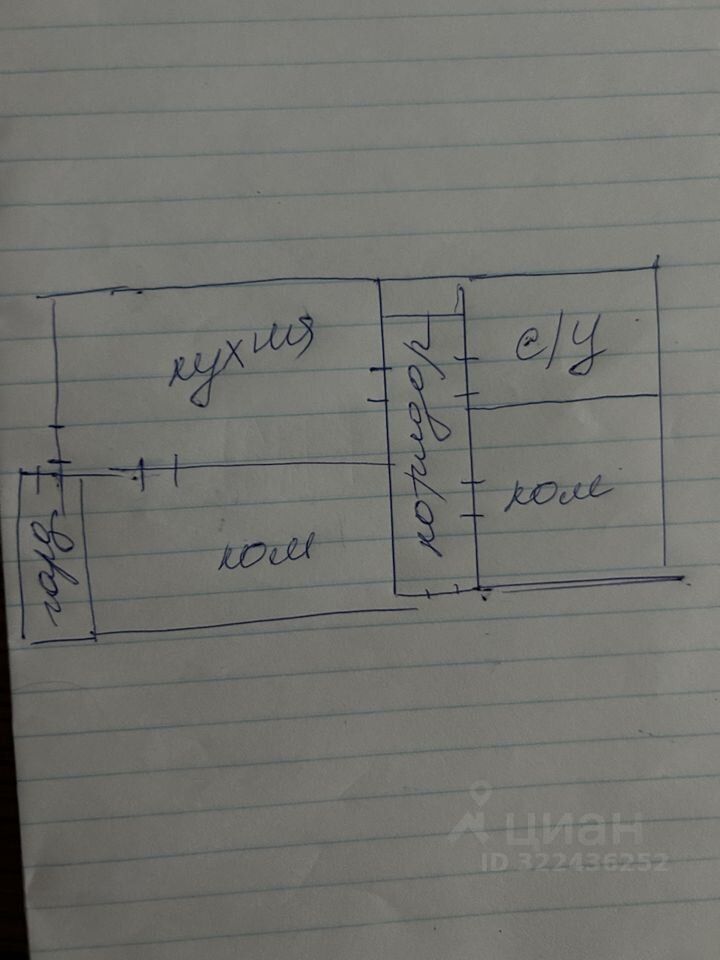 кухня
с/у
коридор
ком
ком
гард
циан
ID 322436252